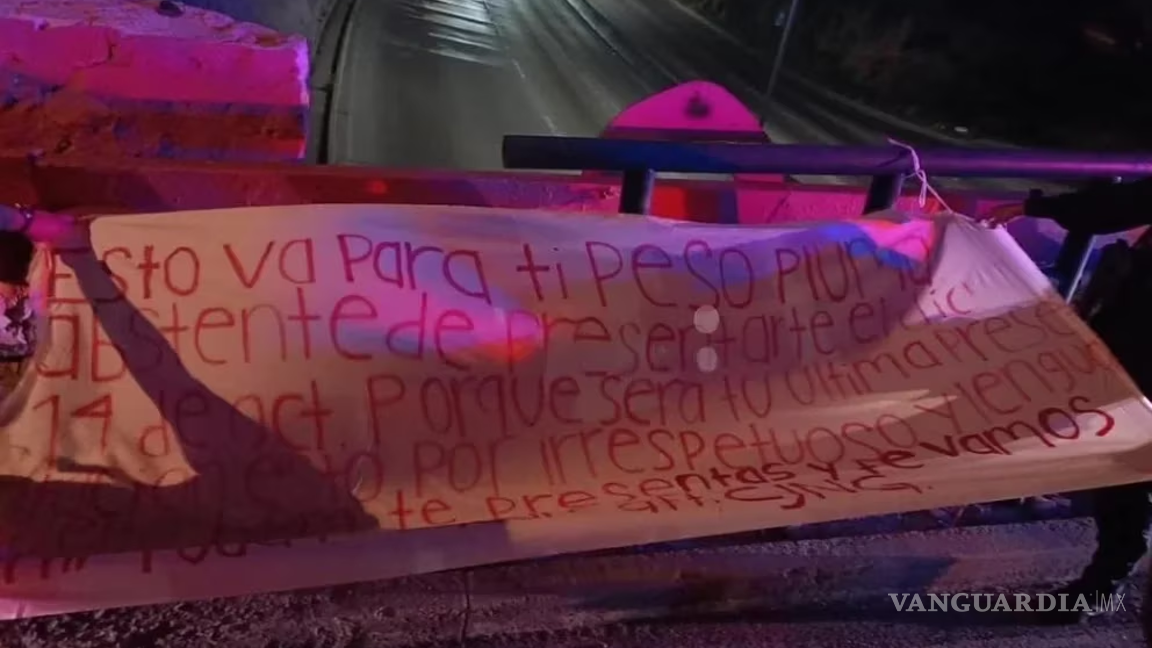 Esto va Para ti Peso Pluma
abstente de presentarte el dic
14 de oct. Porque sera tu ultima prese
esto por irrespetuoso y lengua
te presentas y te vamos
VANGUARDIA|MX